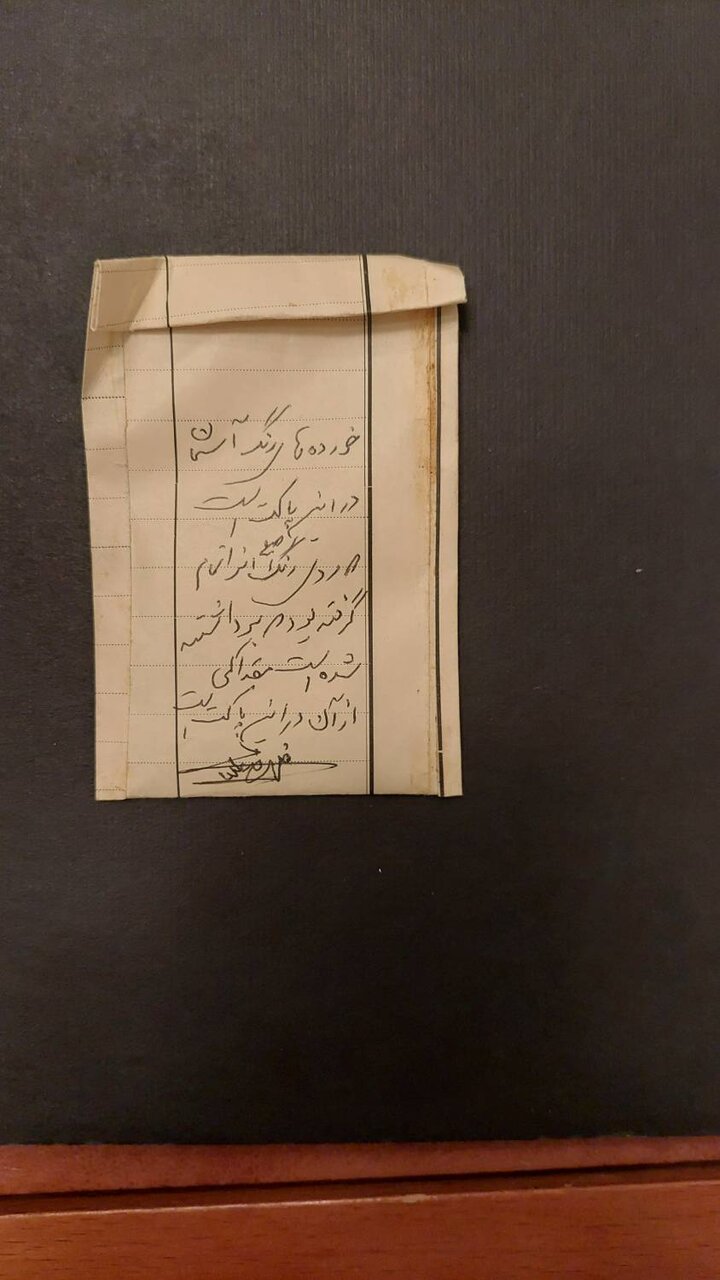 خورده های رنگ آسمان
در این پاکت است
که روی رنگ اصلی انرا
گرفته بودم برداشته
شده است مقداکمی
از آن در این پاکت است